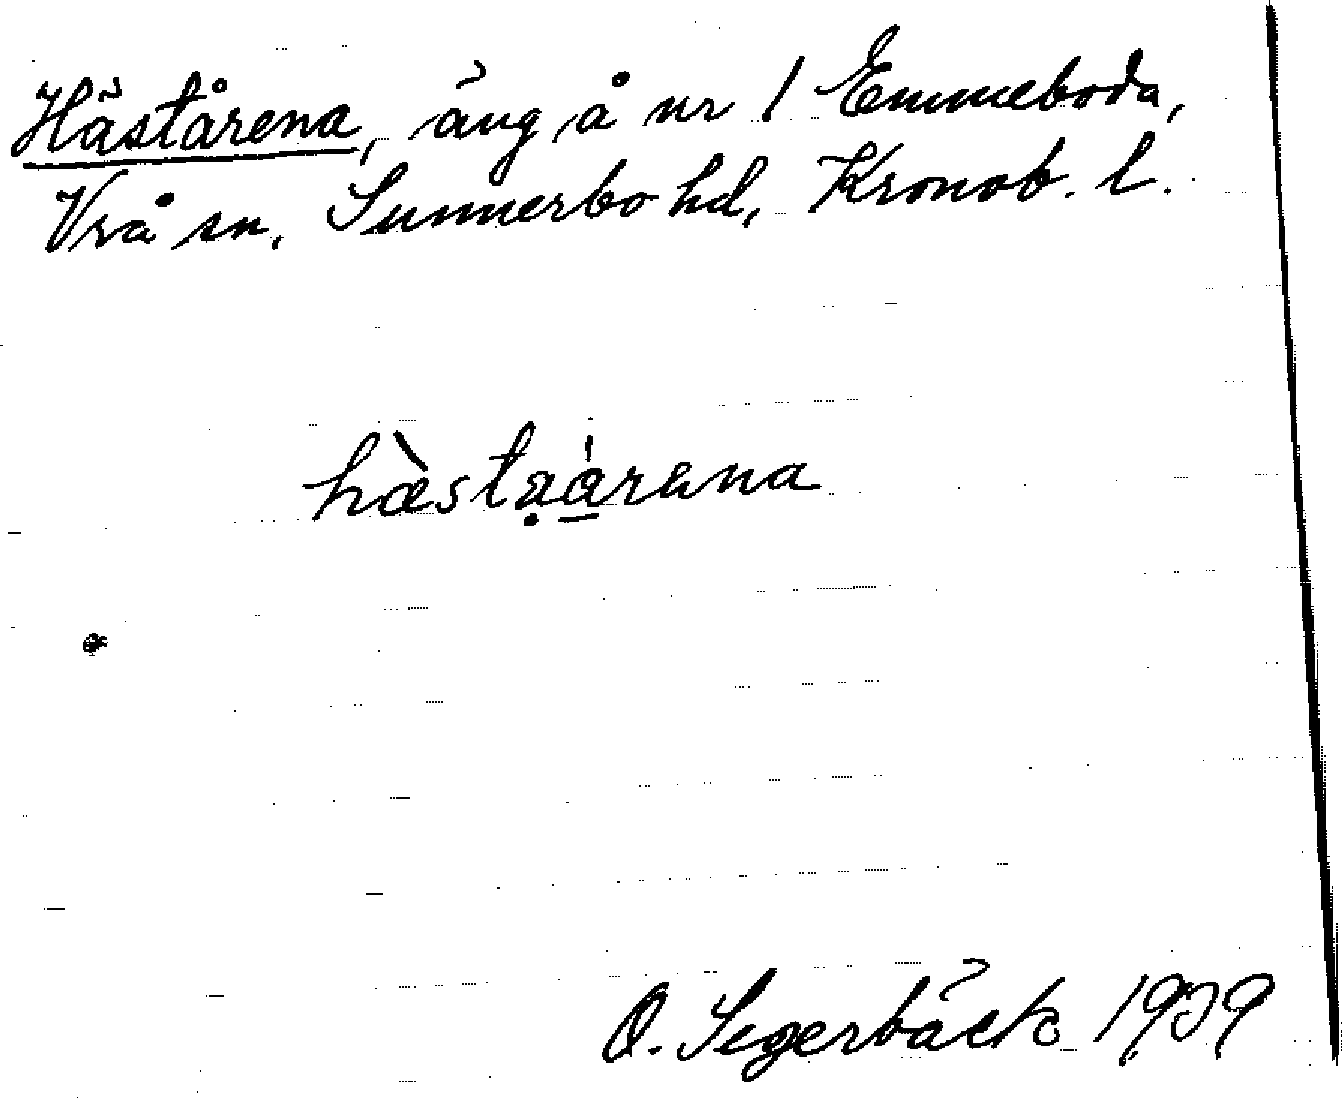 Hästårena, äng å nr 1 Emmeboda,
Vrå sn, Sunnerbo hd, Kronob. l.
hæ̀staạ̱́rena
O. Segerbäck 1939